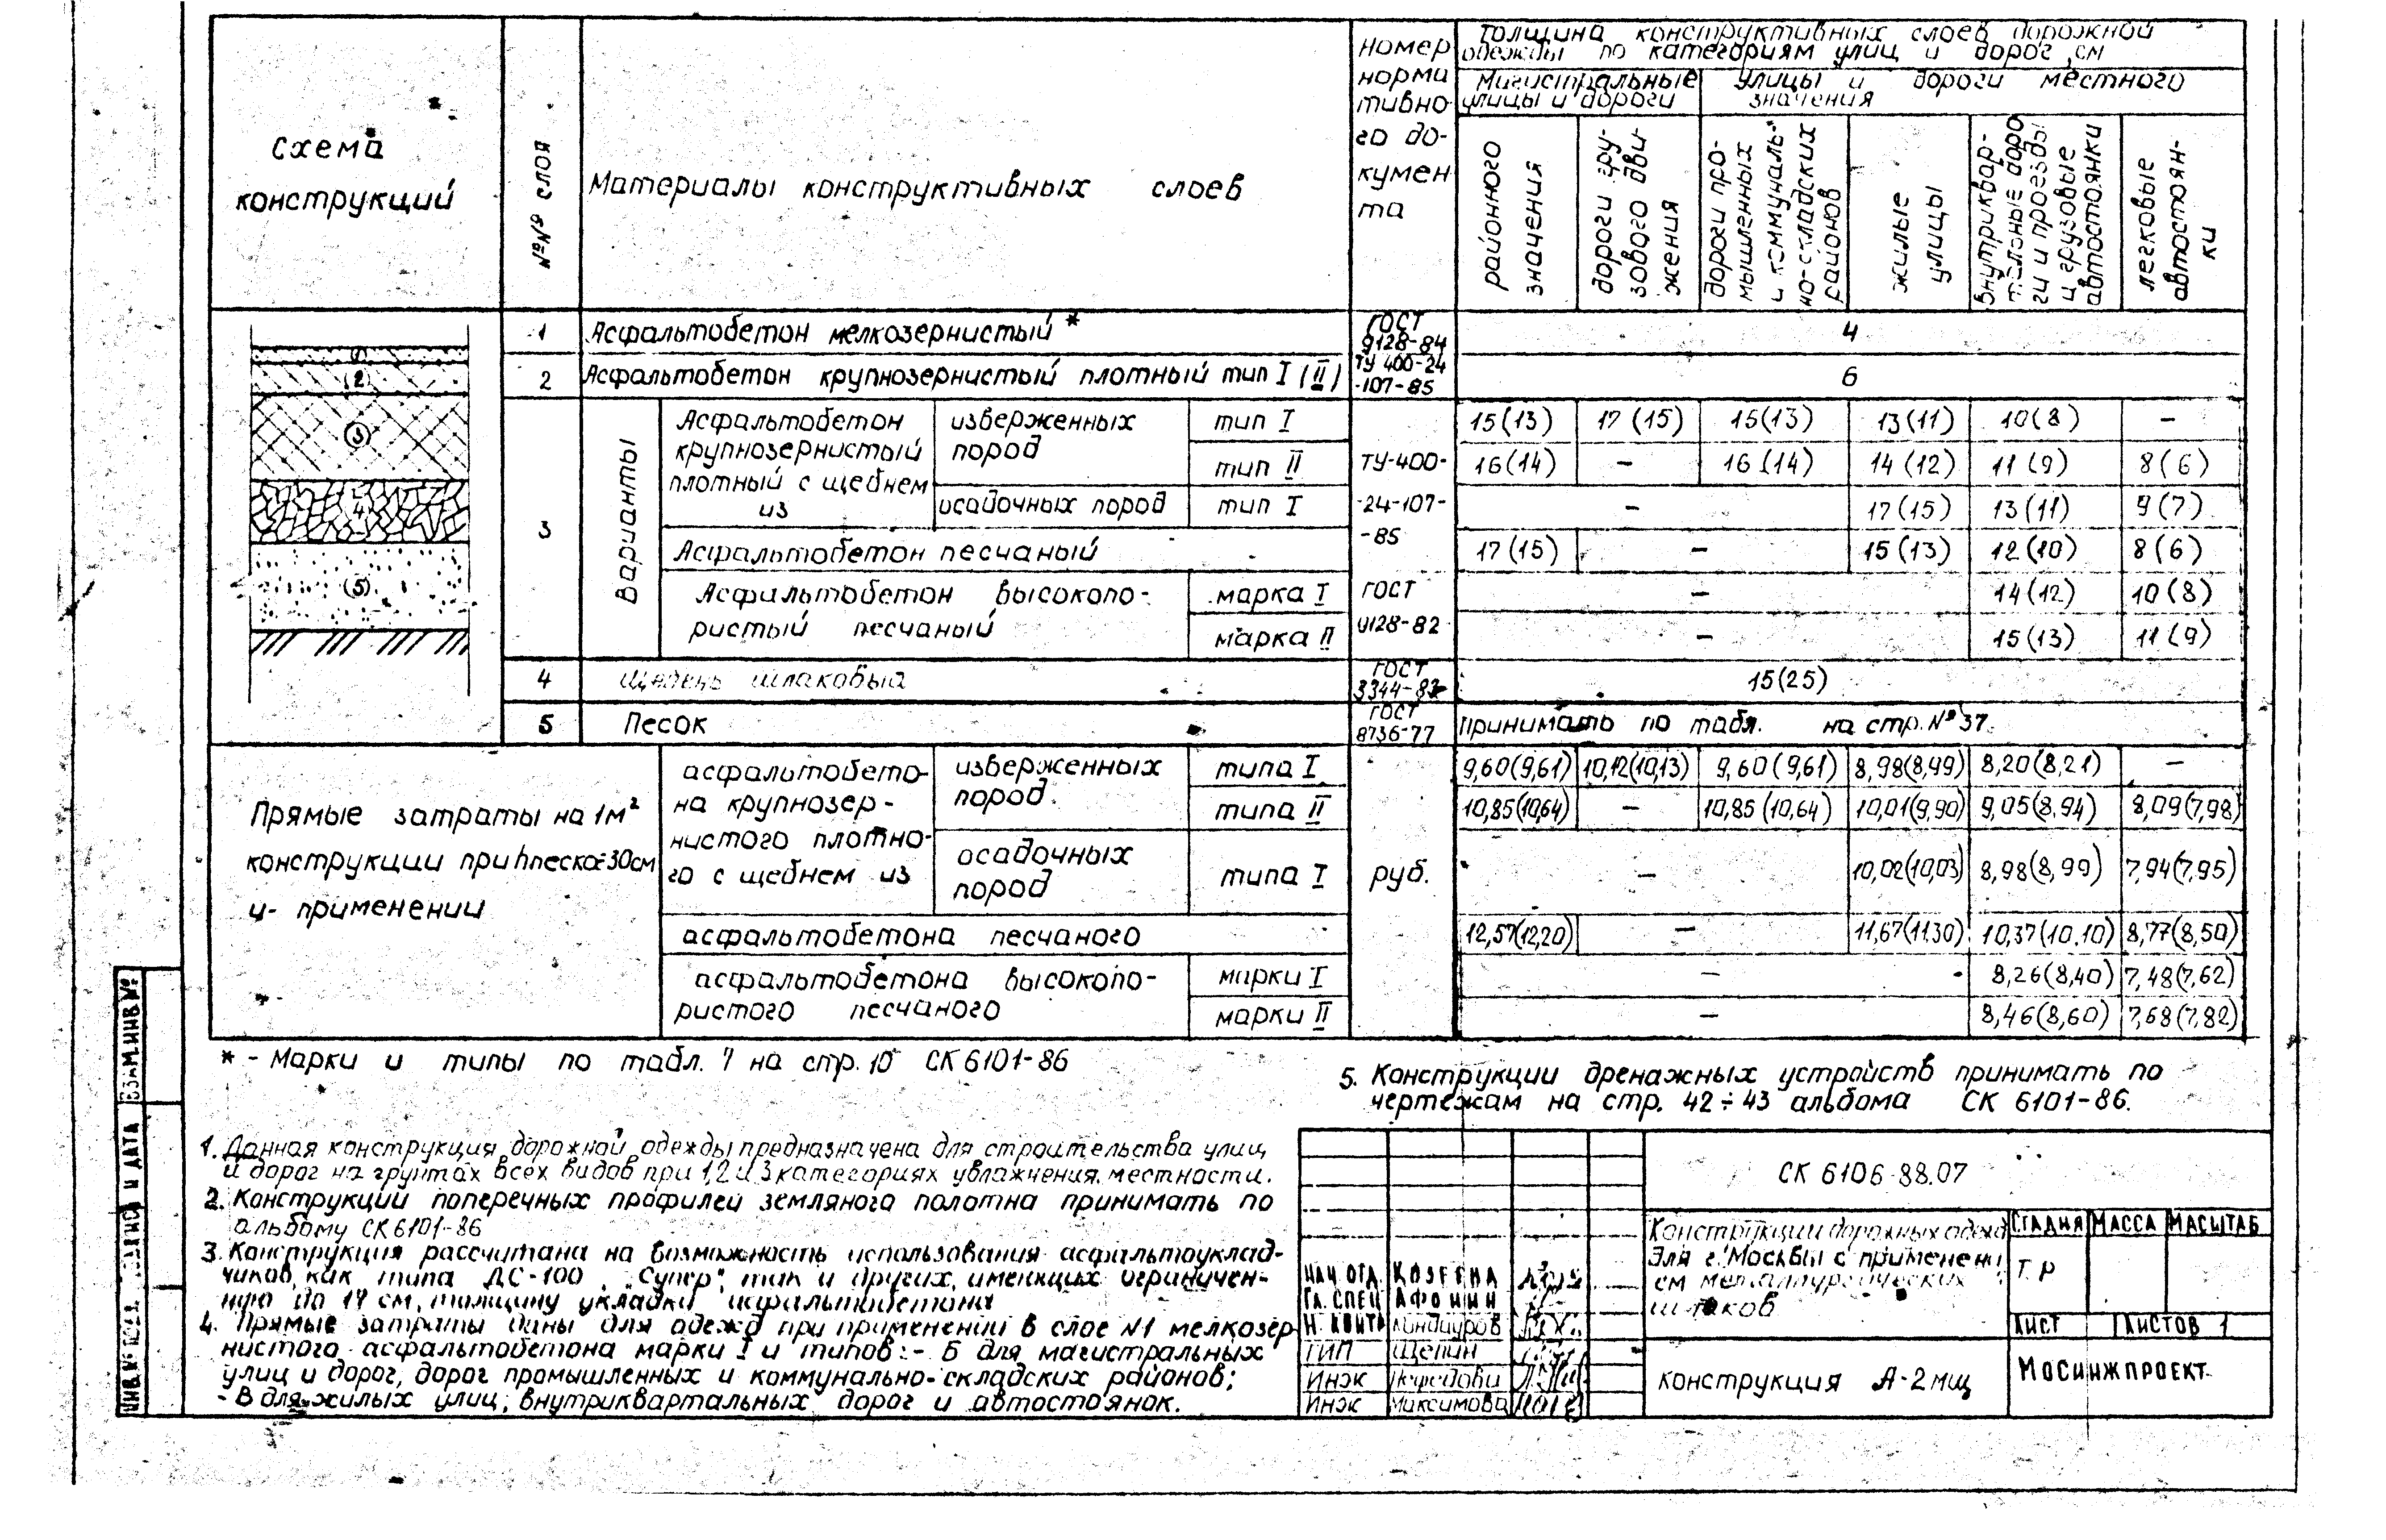 Схема
конструкций
№№ слоя
Материалы конструктивных слоев
Номер
норма
тивно
го до-
кумен
та
Толщина конструктивных слоев дорожной
одежды по категориям улиц и дорог, см
Магистральные
улицы и дороги
Улицы и дороги местного
значения
районного
значения
дороги гру-
зового дви-
жения
дороги про-
мышленных
и коммуналь-
но-складских
районов
жилые
улицы
внутриквар-
тальные доро
ги и проезды
и грузовые
автостоянки
легковые
автостоян-
ки
1 Асфальтобетон мелкозернистый * ГОСТ 9128-84 4
2 Асфальтобетон крупнозернистый плотный тип I (II) ТУ 400-24 -107-85 6
3 Варианты
Асфальтобетон
крупнозернистый
плотный с щебнем
из
изверженных
пород
тип I 15(13) 17(15) 15(13) 13(11) 10(8) –
тип II 16(14) – 16(14) 14(12) 11(9) 8(6)
осадочных пород тип I – 17(15) 13(11) 9(7)
ТУ-400-
-24-107-
-85
Асфальтобетон песчаный 17(15) – 15(13) 12(10) 8(6)
Асфальтобетон высокопо-
ристый песчаный
марка I – 14(12) 10(8)
марка II – 15(13) 11(9)
ГОСТ
9128-82
4 Щебень шлаковый ГОСТ 3344-83 15(25)
5 Песок ГОСТ 8736-77 Принимать по табл. на стр. №37.
1
2
3
4
5
Прямые затраты на 1м²
конструкции при hпеска=30см
и- применении
асфальтобето-
на крупнозер-
нистого плотно-
го с щебнем из
изверженных
пород
типа I 9,60(9,61) 10,12(10,13) 9,60(9,61) 8,98(8,49) 8,20(8,21) –
типа II 10,85(10,64) – 10,85(10,64) 10,01(9,90) 9,05(8,94) 8,09(7,98)
осадочных
пород
типа I – 10,02(10,03) 8,98(8,99) 7,94(7,95)
руб.
асфальтобетона песчаного 12,57(12,20) – 11,67(11.30) 10,37(10.10) 8,77(8,50)
асфальтобетона высокопо-
ристого песчаного
марки I – 8,26(8,40) 7,48(7,62)
марки II – 8,46(8,60) 7,68(7,82)
* - Марки и типы по табл. 7 на стр. 10 СК 6101-86
5. Конструкции дренажных устройств принимать по
чертежам на стр. 42÷43 альбома СК 6101-86.
1. Данная конструкция дорожной одежды предназначена для строительства улиц
и дорог на грунтах всех видов при 1,2 и 3 категориях увлажнения местности.
2. Конструкции поперечных профилей земляного полотна принимать по
альбому СК 6101-86
3. Конструкция рассчитана на возможность использования асфальтоуклад-
чиков, как типа ДС-100, "Супер", так и других, имеющих ограничен-
ную до 17 см, толщину укладки асфальтобетона
4. Прямые затраты даны для одежд при применении в слое №1 мелкозер
нистого асфальтобетона марки I и типов:- Б для магистральных
улиц и дорог, дорог промышленных и коммунально-складских районов;
- В для жилых улиц, внутриквартальных дорог и автостоянок.
ВЗАМ.ИНВ.№
ПОДПИСЬ И ДАТА
ИНВ.№
НАЧ.ОТД. КОЗЕЕВА
ГЛ.СПЕЦ АФОНИН
Н.КОНТР
ГИП Щепин
Инж
Инж Максимова
СК 6106-88.07
Конструкции дорожных одежд
для г.Москвы с применени
ем металлургических
шлаков
СТАДИЯ МАССА МАСШТАБ
Т.Р
ЛИСТ ЛИСТОВ 1
конструкция А-2мщ
МОСИНЖПРОЕКТ